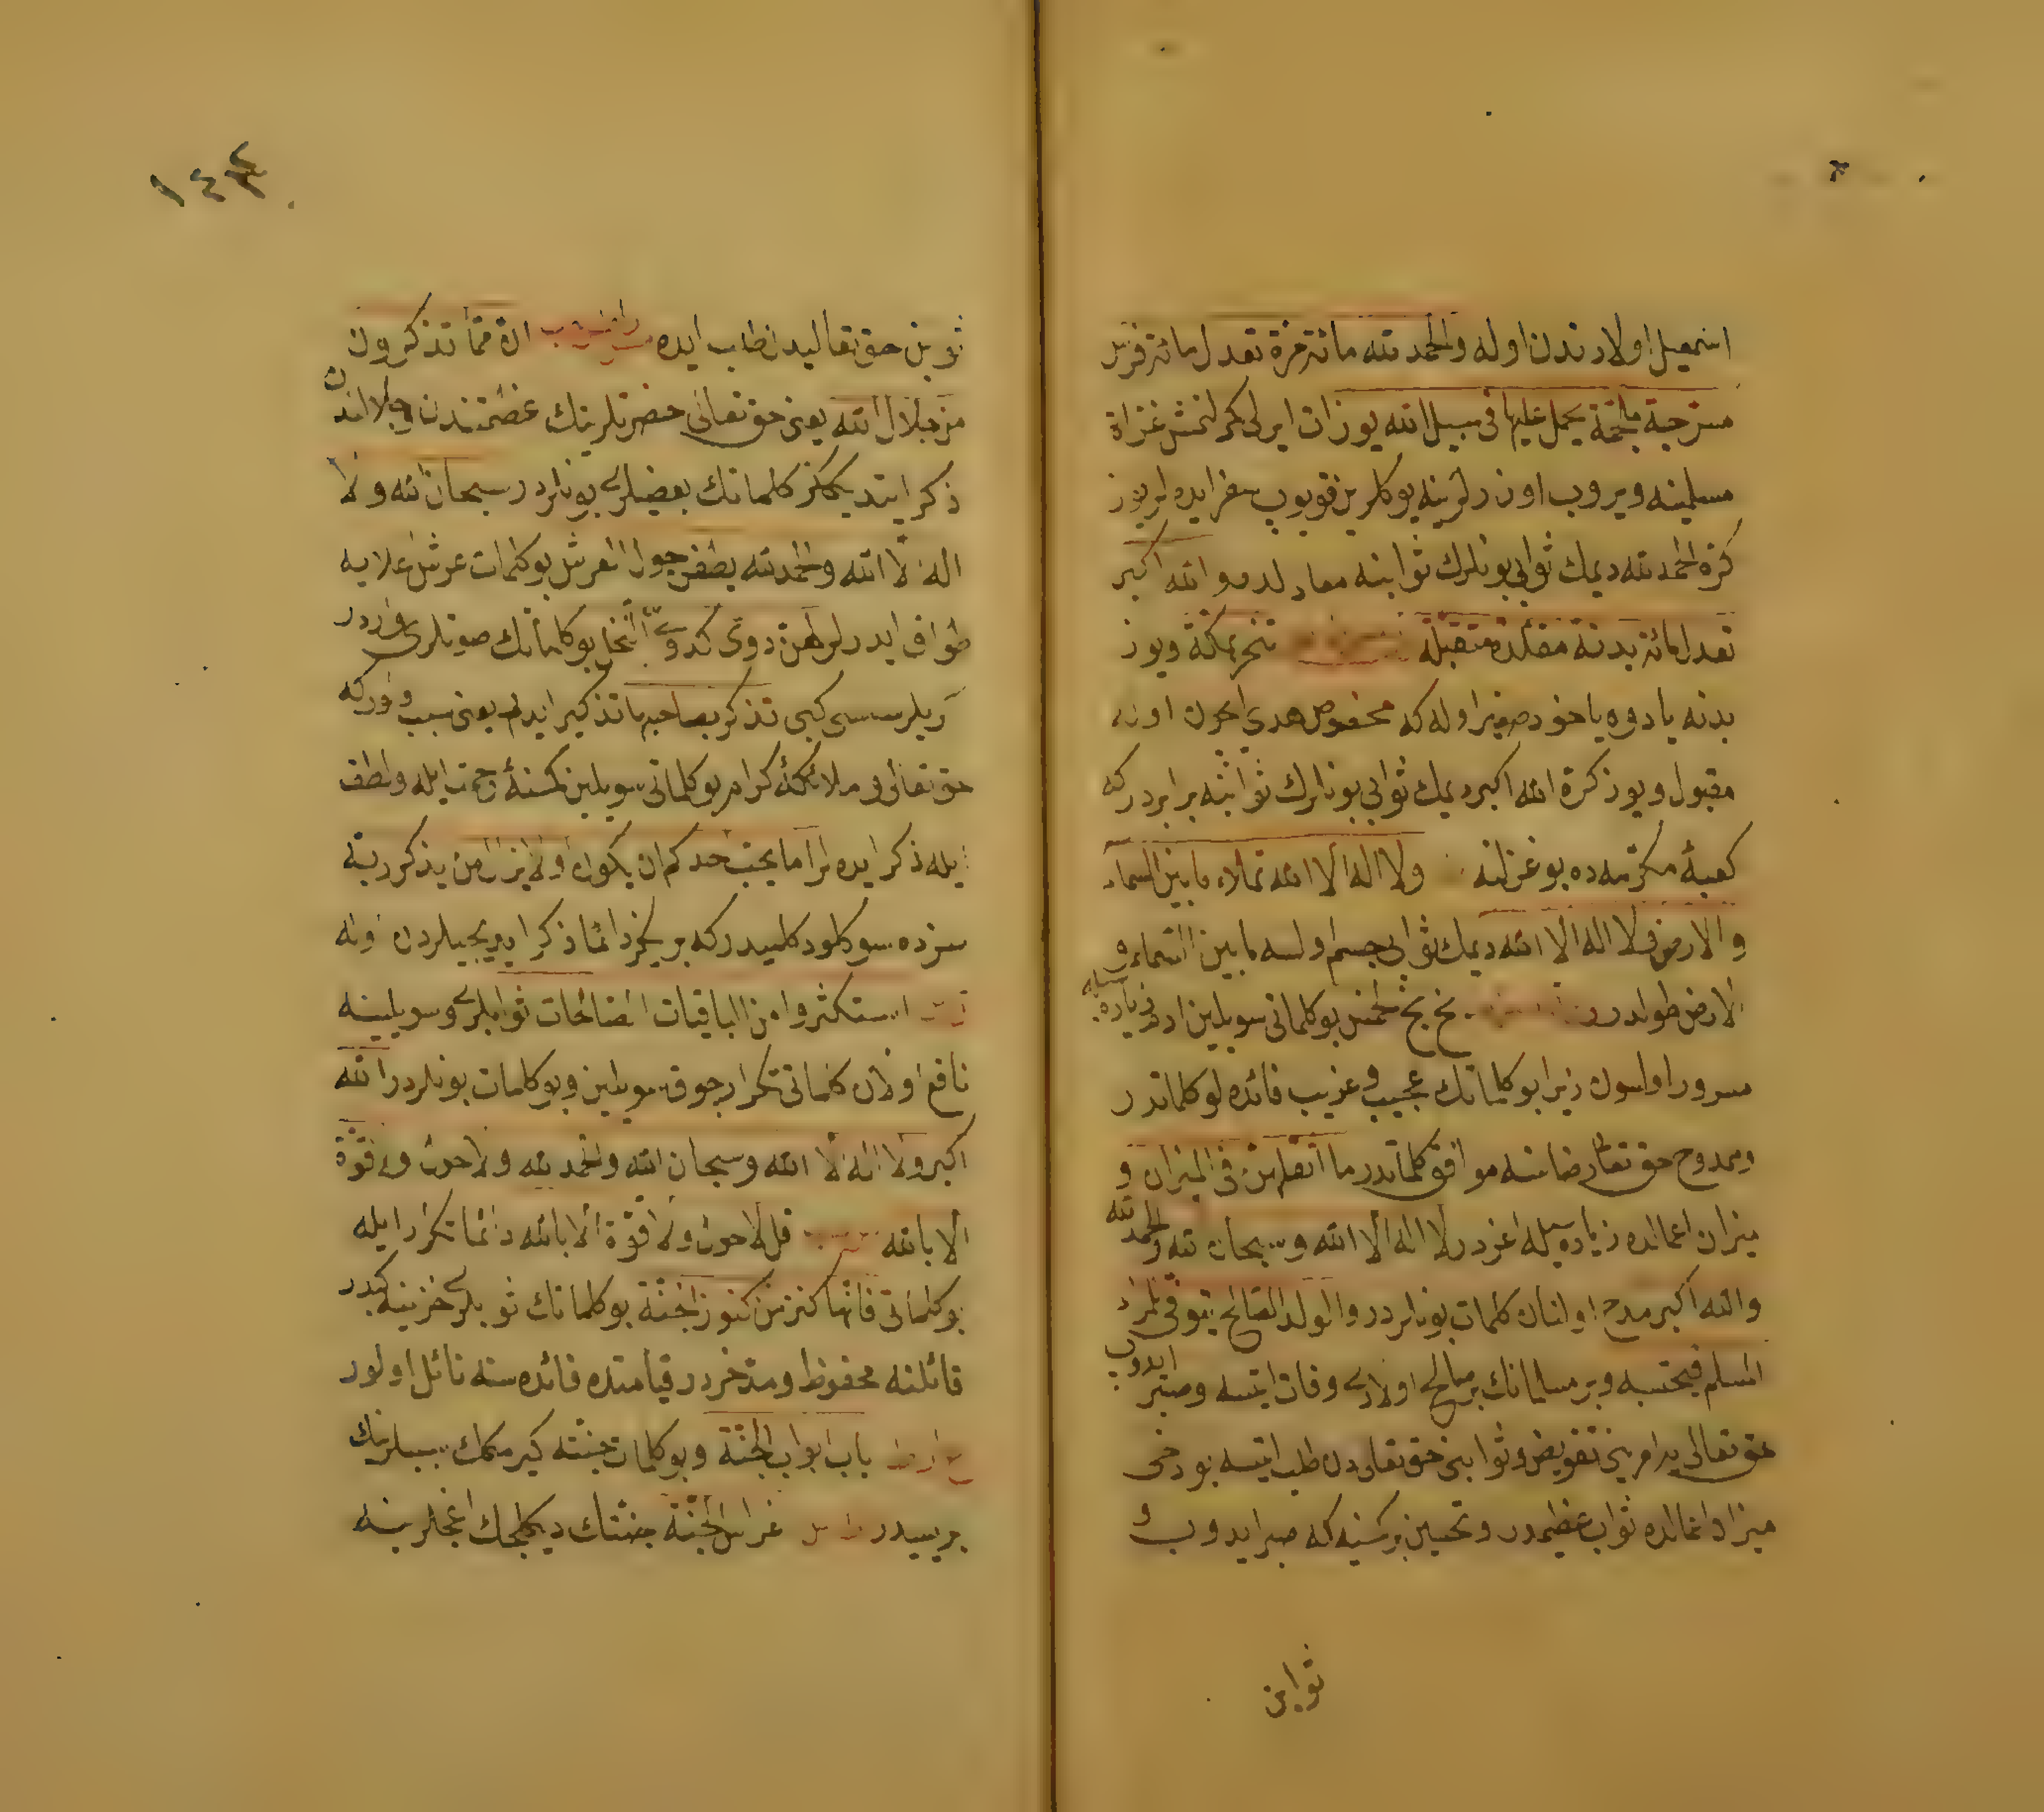 اسمعيل اولادندن اوله والحمد لله مائة مرة تعدل مائة فرس
مسرجة ملجمة يحمل عليها في سبيل الله يوز ات ايرلي كملنمش غزاة
مسلمينه ويروب اوزرلرينه يوكلرين قويوب سفر ايده لر يوز
كرة الحمد لله ديمك ثوابي بونلرك ثوابنه معادلدر والله اكبر
تعدل مائة بدنة مقلدة متقبلة تنحر بمكة ويوز
بدنه يا دوه يا خود صغير اوله كه مخصوص هدي احرن اوله
مقبول ويوز كرة الله اكبر ديمك ثوابي بونلرك ثوابنه برابردركه
كعبۀ مكرمه ده بوغزلنه ولا اله الا الله تملاء ما بين السماء
والارض ولا اله الا الله ديمك ثوابي جسم اولسه ما بين السماء و
الارض طولدرر بخ بخ لخمس بوكلماتي سويلين ادم زياده سيله
مسرور اولسون زيرا بوكلماتك عجيب وغريب فائده لو كلماتدر
وممدوح حق تعالى رضاسنه موافق كلماتدر ما اثقلهن في الميزان و
ميزان اعمالده زياده سيله اغردر لا اله الا الله وسبحان الله والحمد لله
والله اكبر مدح اولنان كلمات بونلردر والولد الصالح يتوفى للمرء
المسلم فيحتسبه وبر مسلمانك بر صالح اولادى وفات ايتسه وصبر ايدوب
حق تعالى يه امريني تفويض وثوابني حق تعالى دن طلب ايتسه بو دخى
ميزان اعمالده ثواب عظيمدر وتحسين بر كسنه كه صبر ايدوب
ثوابن
١٤٣
ثوابن حق تعاليدن طلب ايده ان مما تذكرون
من جلال الله يعني حق تعالى حضرتلرينك عظمتندن وجلالندن
ذكر ايتديككز كلماتك بعضيلرى بونلردر سبحان الله ولا
اله الا الله والحمد لله يطفن حول العرش بوكلمات عرش اعلايه
طواف ايدرلر لهن دوي كدوي النحل بوكلماتك صوتلرى واردر
اريلر سسى كبى تذكر بصاحبها تذكير ايدلر يعني سبب اولورلركه
حق تعالى و ملائكۀ كرام بوكلماتي سويلين كمسنۀ رحمت ايله ولطف
ايله ذكر ايده لر اما يحب احدكم ان يكون له او لا يزال من يذكر به
سزده سوكلود كلميدركه بريكز دائما ذكر ايديجيلردن اوله
استكثروا من الباقيات الصالحات ثوابلرى وسويلينه
نافع اولان كلماتي تكرار چوق سويلين وبوكلمات بونلردر الله
اكبر ولا اله الا الله وسبحان الله والحمد لله ولا حول ولا قوة
الا بالله قل لا حول ولا قوة الا بالله دائما تكرار ايله
بوكلماتي فانها كنز من كنوز الجنة بوكلماتك ثوابلرى خزينه كبيدر
قائلنه محفوظ ومدخردر قيامتده فائده سنه نائل اولور
باب ابواب الجنة وبوكلمات جنته كيرمكك سببلرينك
بريسيدر غراس الجنة جنتك ديكلجك اغجلرينه